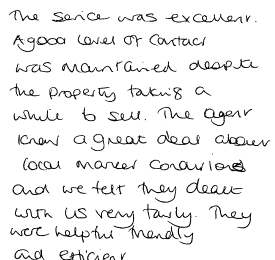 The service was excellent.
A good level of contact
was maintained despite
the property taking a
while to sell. The agent
knew a great deal about
local market conditions
and we felt they dealt
with us very fairly. They
were helpful friendly
and efficient